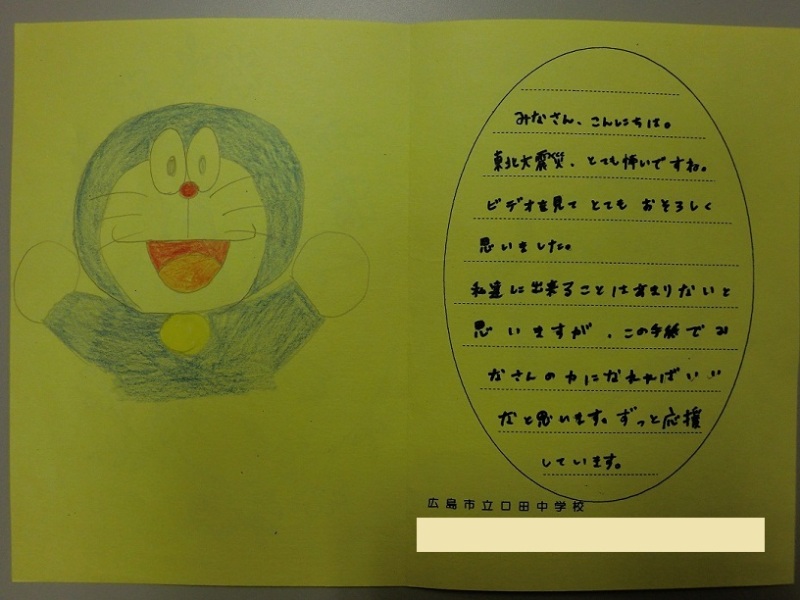 みなさん、こんにちは。
東北大震災、とても怖いですね。
ビデオを見てとてもおそろしく
思いました。
私達に出来ることはあまりないと
思いますが、この手紙でみ
なさんの力になれればいい
なと思います。ずっと応援
しています。
広島市立口田中学校